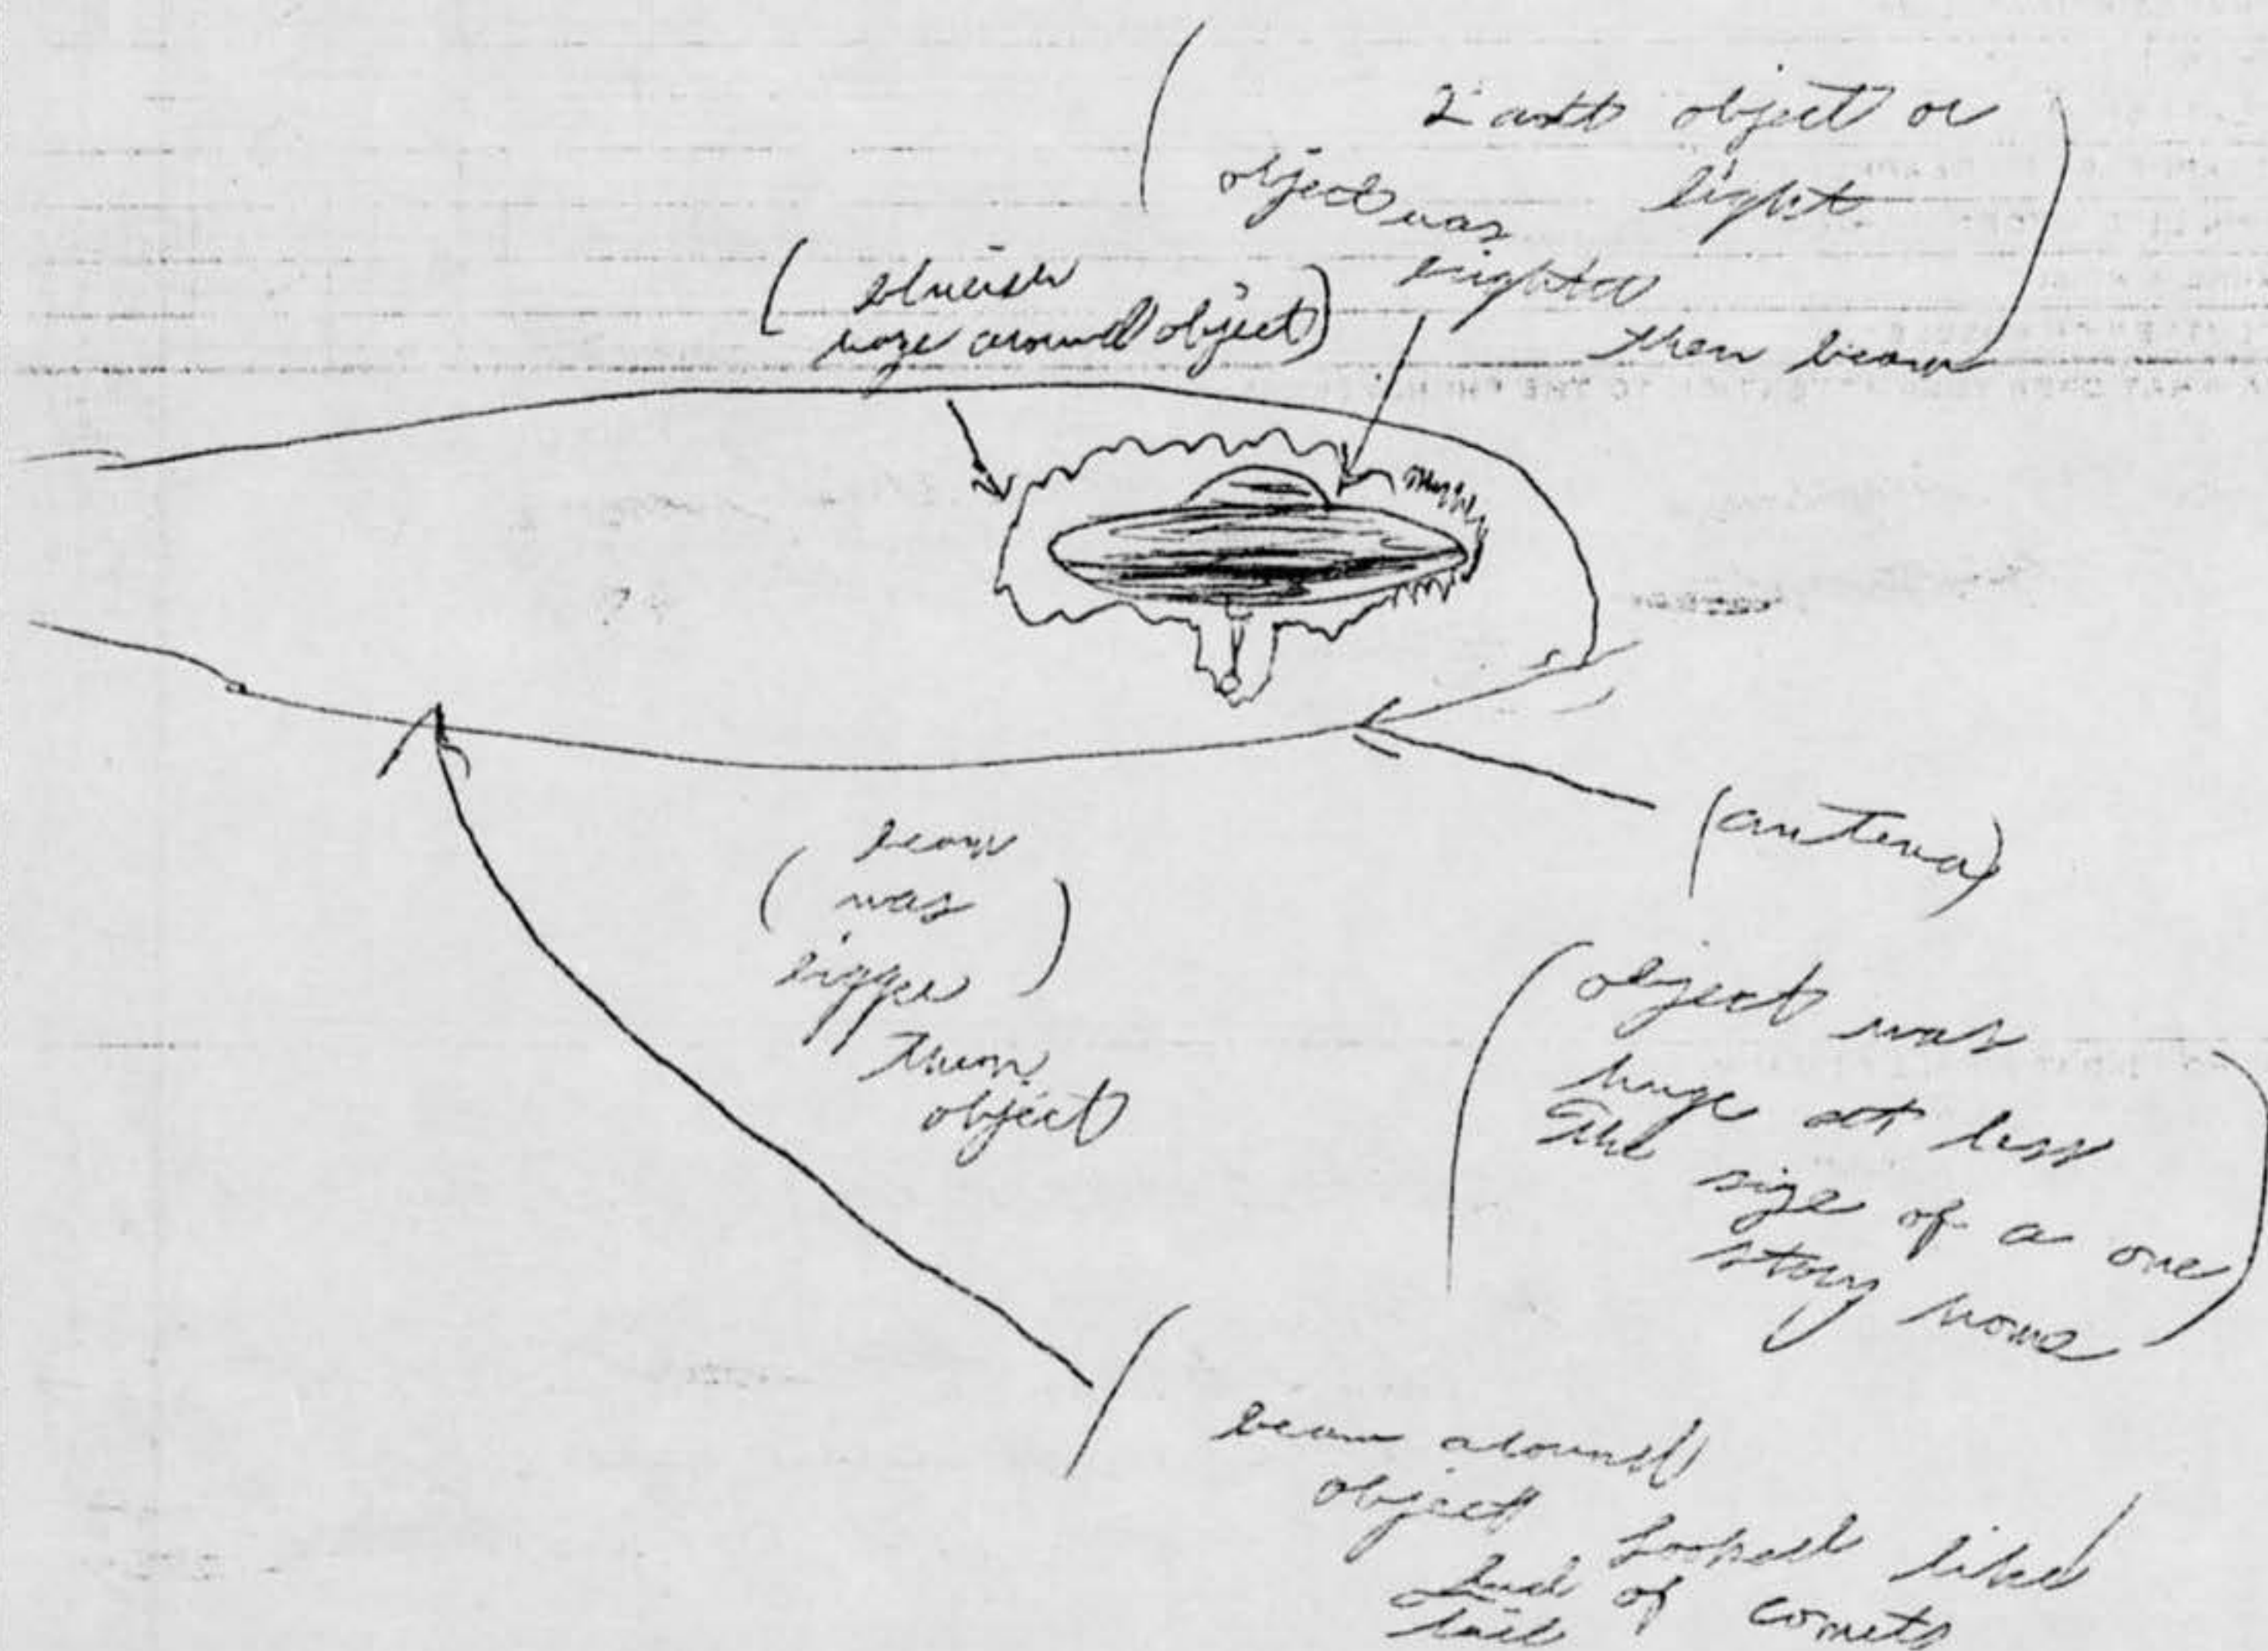 object or
object was light
brighter
then beam
(bluish
haze around object)
(antena)
(beam
was
bigger
then
object
(object was
huge at less
the size of a one
story home)
beam around
object looked like
of comets
tail